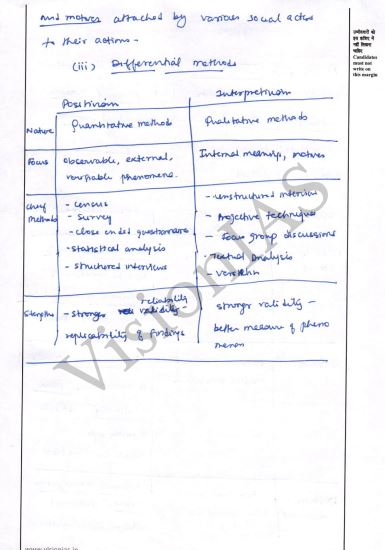 and motives attached by various social actors
to their actions -
(iii) Differential methods
Positivism Interpretivism
Nature Quantitative methods Qualitative methods
Focus observable, external, verifiable phenomena. Internal meanings, motives
Chief Methods
- Census
- Survey
- close ended questionnaire
- statistical analysis
- structured interviews
- unstructured interview
- Projective technique
- Focus group discussions
- Textual Analysis
- Verstehen
Strengths
- stronger reliability -
replicability of findings
stronger validity -
better measure of pheno
menon
उम्मीदवारों को
इस हाशिए में
नहीं लिखना
चाहिए
Candidates
must not
write on
this margin
VisionIAS
www.visionias.in